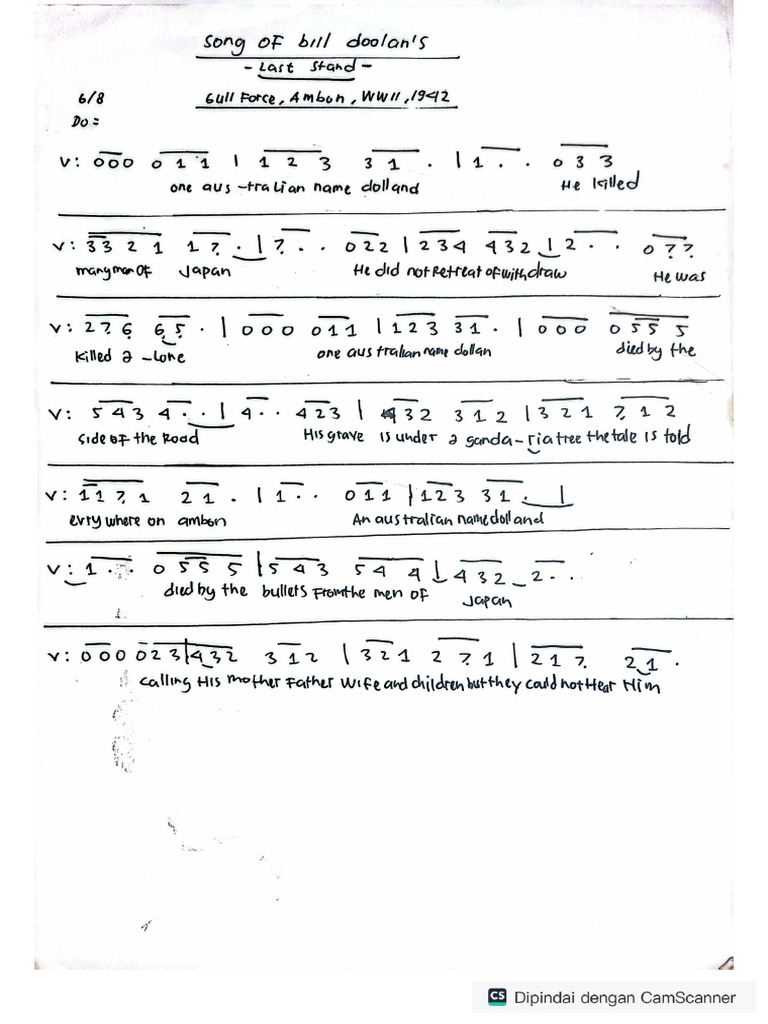 Song OF bill doolan's
- Last Stand -
6/8
Gull Force, Ambon, WWII, 1942
Do =
V: 000 0 1 1 | 1 2 3 3 1 . | 1 . . 0 3 3
one aus -tralian name dolland He killed
V: 33 2 1 1 7 . | 7 . . 0 2 2 | 2 3 4 4 3 2 | 2 . . 0 7 7
many men OF Japan He did not Retreat of withdraw He was
V: 2 7 6 6 5 . | 0 0 0 0 1 1 | 1 2 3 3 1 . | 0 0 0 0 5 5 5
killed a -lone one australian name dollan died by the
V: 5 4 3 4 . . | 4 . . 4 2 3 | 4 3 2 3 1 2 | 3 2 1 7 1 2
Side OF the Road His grave is under a ganda-ria tree the tale is told
V: 1 1 7 1 2 1 . | 1 . . 0 1 1 | 1 2 3 3 1 . |
evry where on ambon An australian name dolland
V: 1 . . 0 5 5 5 | 5 4 3 5 4 4 | 4 3 2 2 . .
died by the bullets From the men of Japan
V: 0 0 0 0 2 3 | 4 3 2 3 1 2 | 3 2 1 2 7 1 | 2 1 7 2 1 .
calling His mother Father Wife and children but they could not Hear Him
CS Dipindai dengan CamScanner